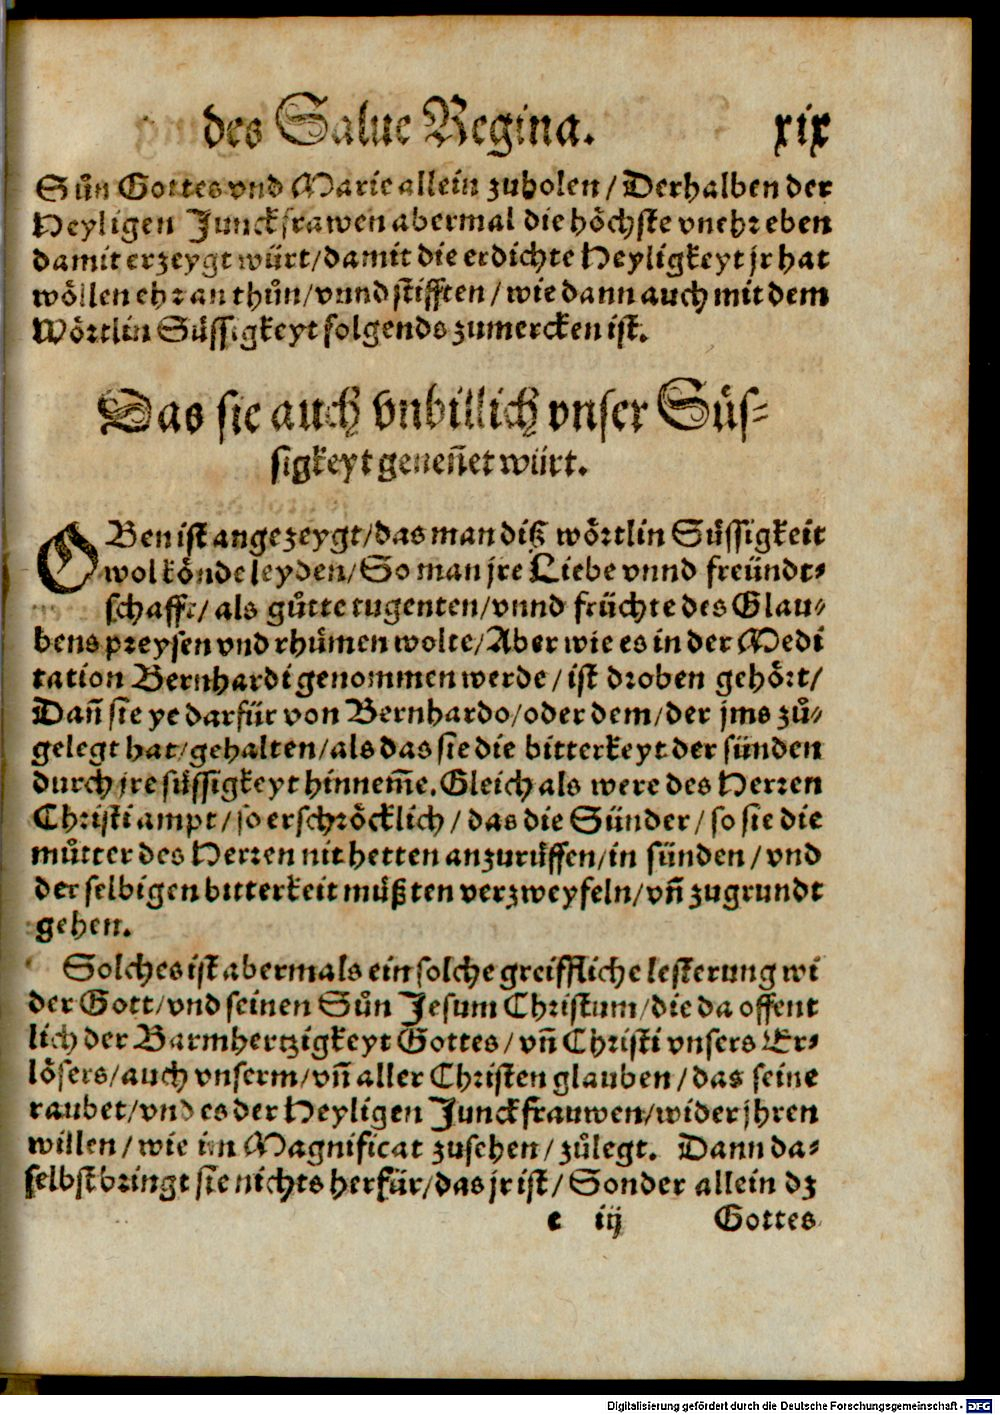 des Salue Regina. xix
Sůn Gottes vnd Marie allein zuholen / Derhalben der
Heyligen Junckfrawen abermal die höchste vnehr eben
damit erzeygt würt / damit die erdichte Heyligkeyt jr hat
wöllen ehr an thůn / vnnd stifften / wie dann auch mit dem
Wörtlin Süssigkeyt folgends zumercken ist.
Das sie auch vnbillich vnser Süs⸗
sigkeyt geneñet würt.
OBen ist angezeygt / das man diß wörtlin Süssigkeit
wol könde leyden / So man jre Liebe vnnd freündt⸗
schafft / als gůtte tugenten / vnnd früchte des Glau⸗
bens preysen vnd rhůmen wolte / Aber wie es in der Medi
tation Bernhardi genommen werde / ist droben gehört /
Dañ sie ye darfür von Bernhardo / oder dem / der jms zů⸗
gelegt hat / gehalten / als das sie die bitterkeyt der sünden
durch jre süssigkeyt hinnem̃e. Gleich als were des Herren
Christi ampt / so erschröcklich / das die Sünder / so sie die
můtter des Herren nit hetten anzurůffen / in sünden / vnd
der selbigen bitterkeit müßten verzweyfeln / vñ zugrundt
gehen.
Solches ist abermals ein solche greiffliche lesterung wi
der Gott / vnd seinen Sůn Jesum Christum / die da offent
lich der Barmhertzigkeyt Gottes / vñ Christi vnsers Er⸗
lösers / auch vnserm / vñ aller Christen glauben / das seine
raubet / vnd es der Heyligen Junckfrauwen / wider jhren
willen / wie im Magnificat zusehen / zůlegt. Dann da⸗
selbst bringt sie nichts herfür / das jr ist / Sonder allein dz
e iij Gottes
Digitalisierung gefördert durch die Deutsche Forschungsgemeinschaft - DFG